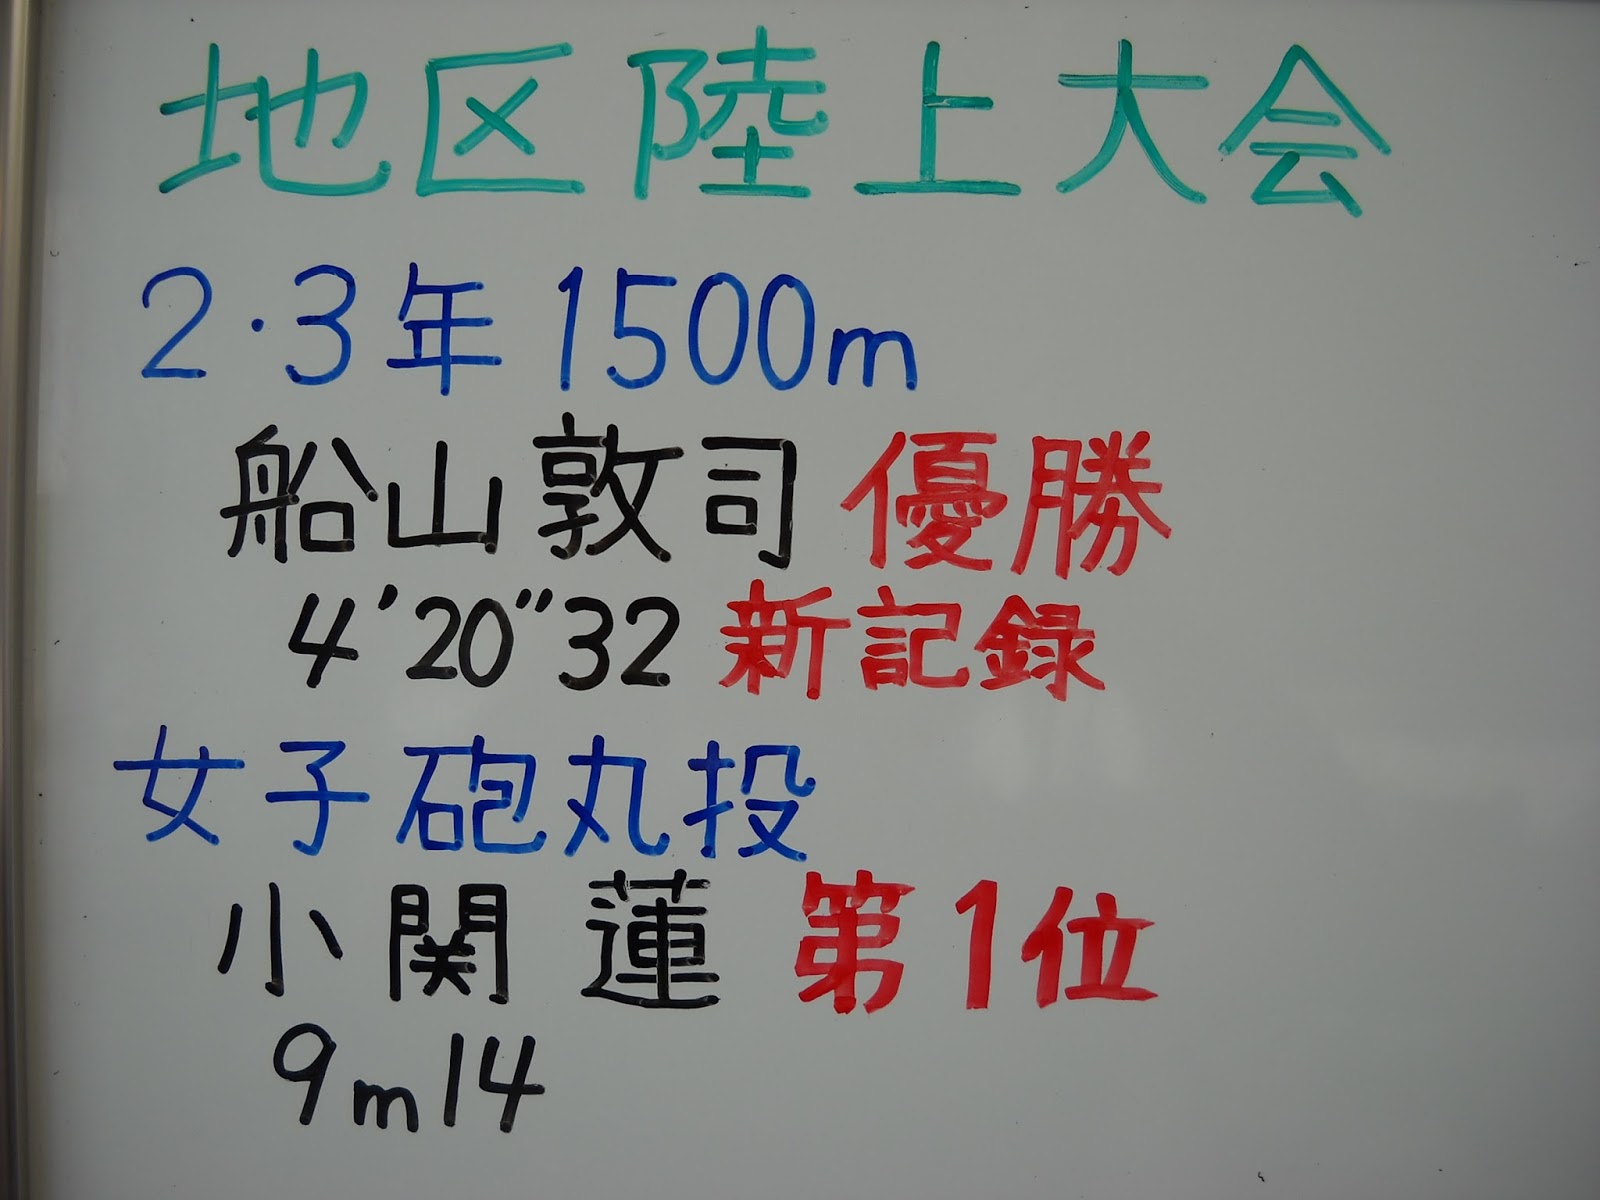 地区陸上大会
2・3年 1500m
船山敦司 優勝
4'20"32 新記録
女子砲丸投
小関 蓮 第1位
9m14